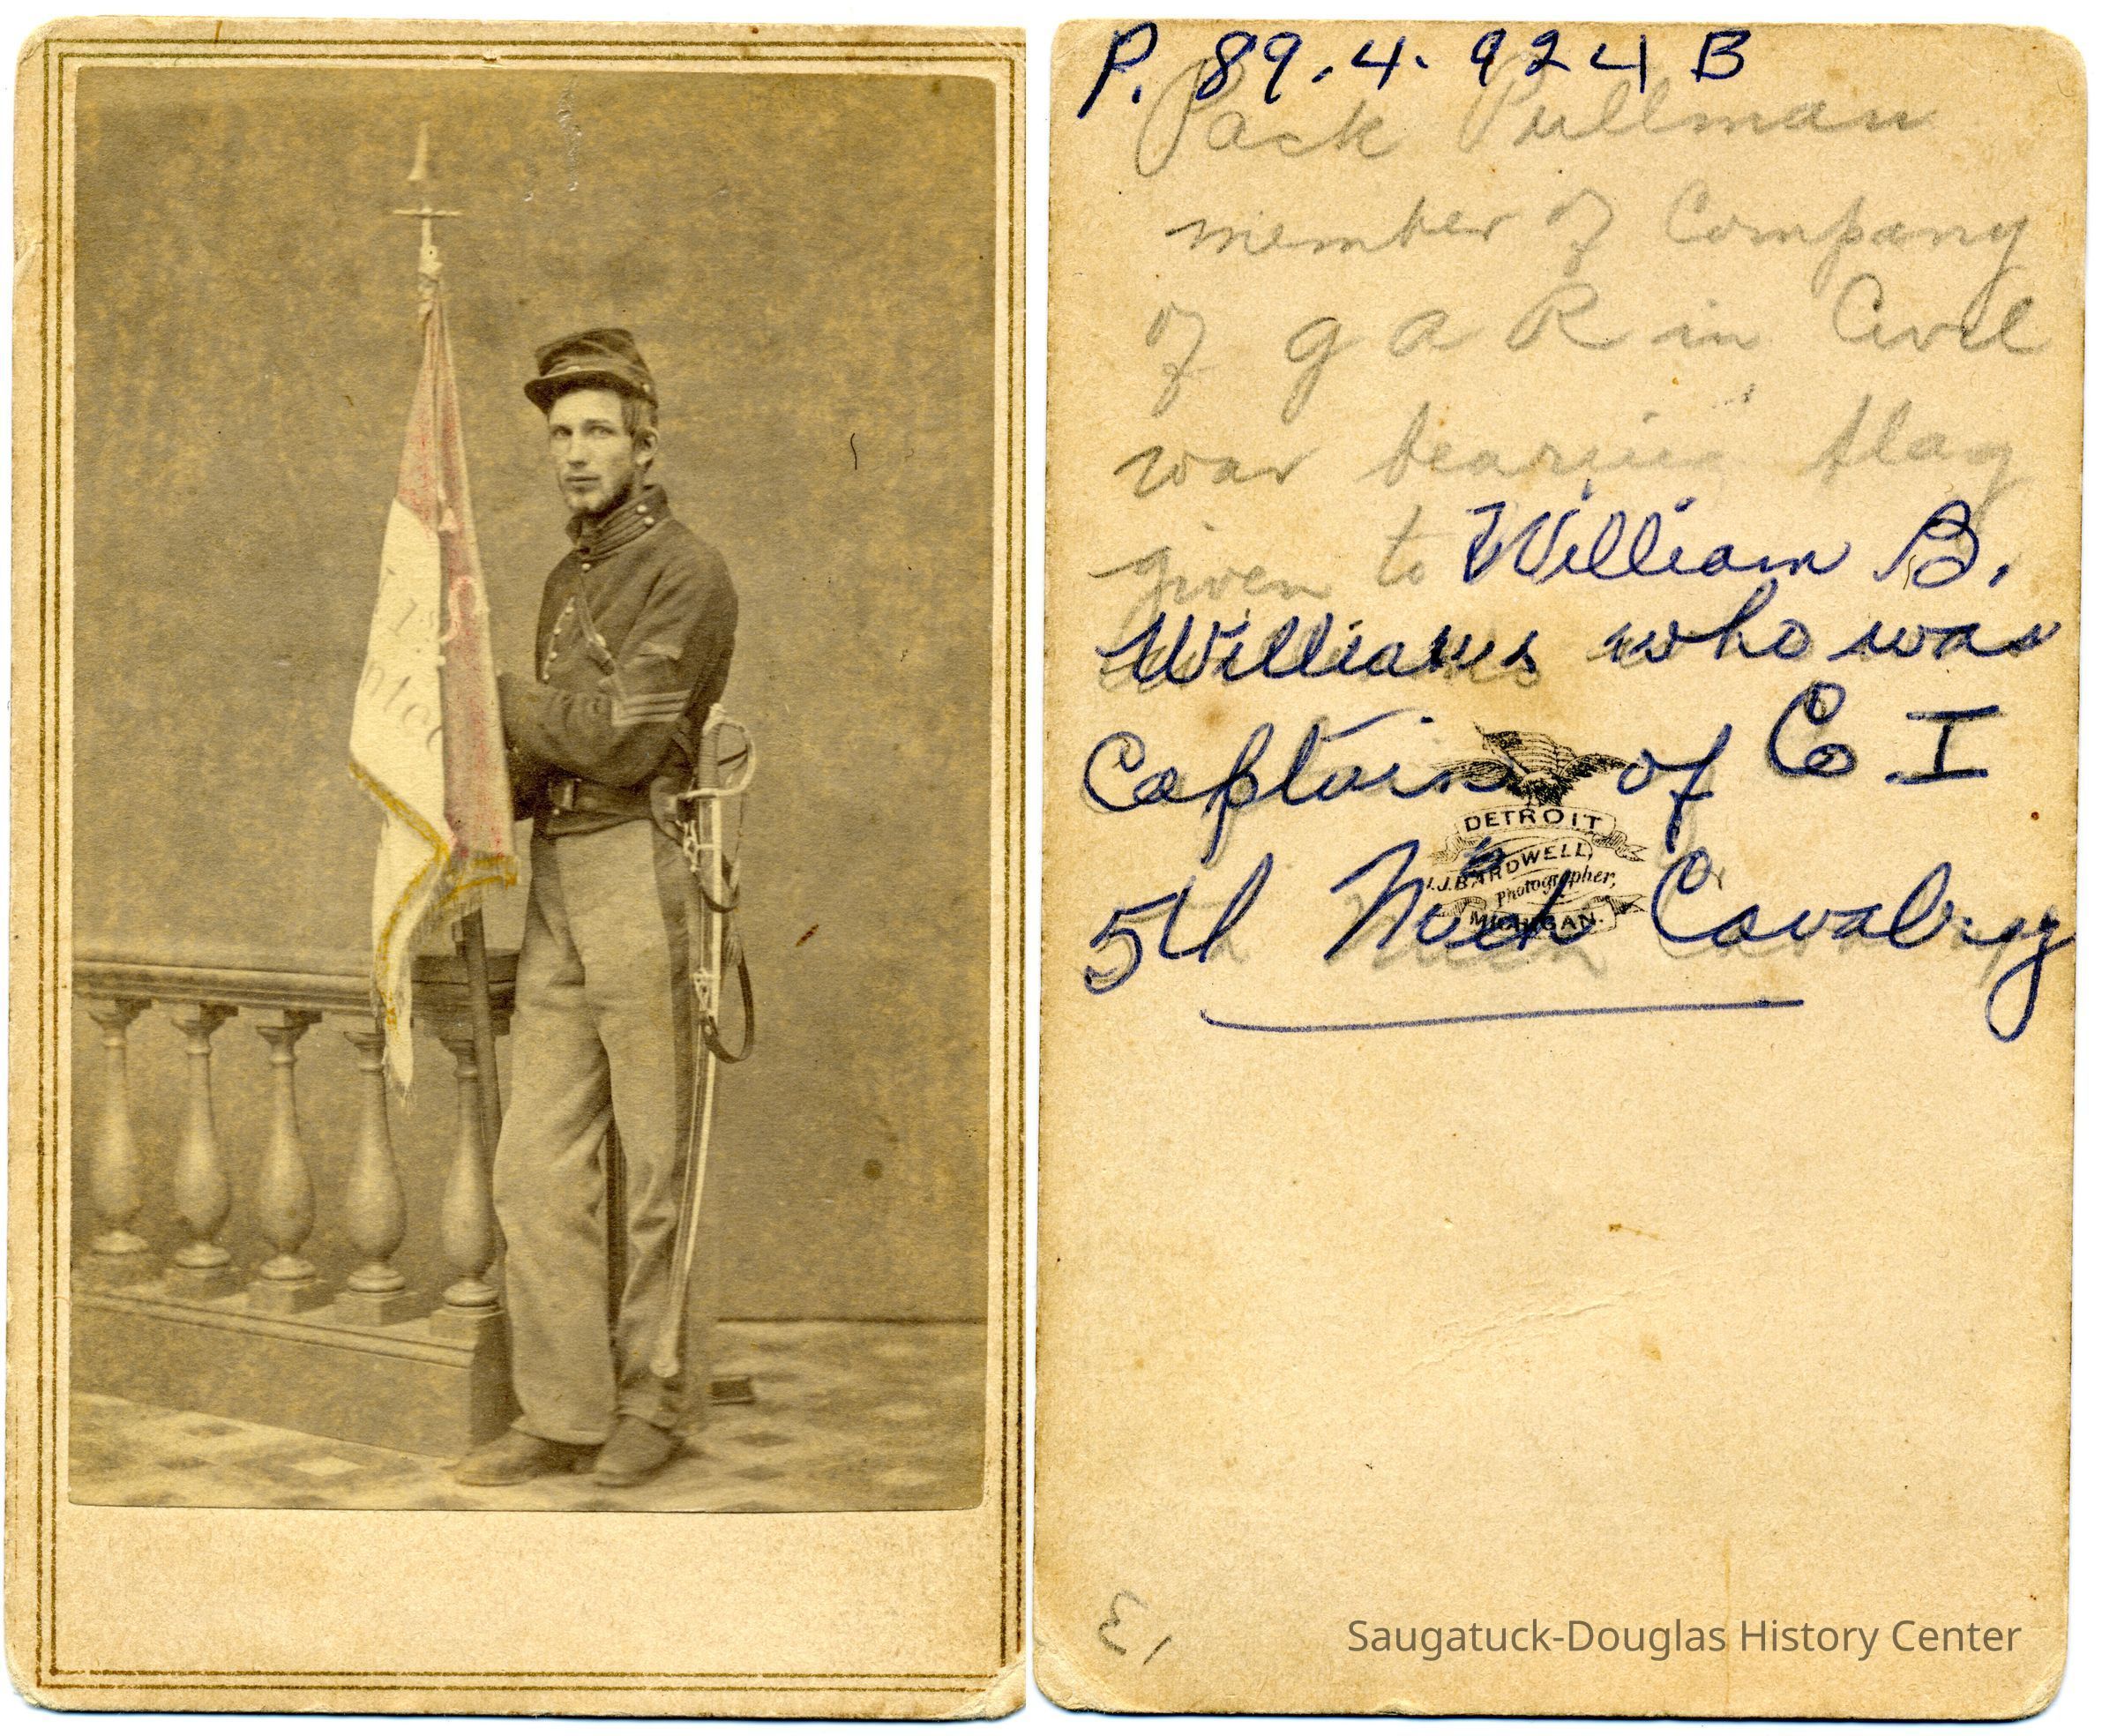 P. 89.4.924 B
Pack Pullman
member of Company
of G A R in Civil
war bearing flag
given to William B.
Williams who was
Captain of Co I
5th Mich Cavalry
DETROIT
J.J. BARDWELL,
Photographer,
MICHIGAN.
13
Saugatuck-Douglas History Center